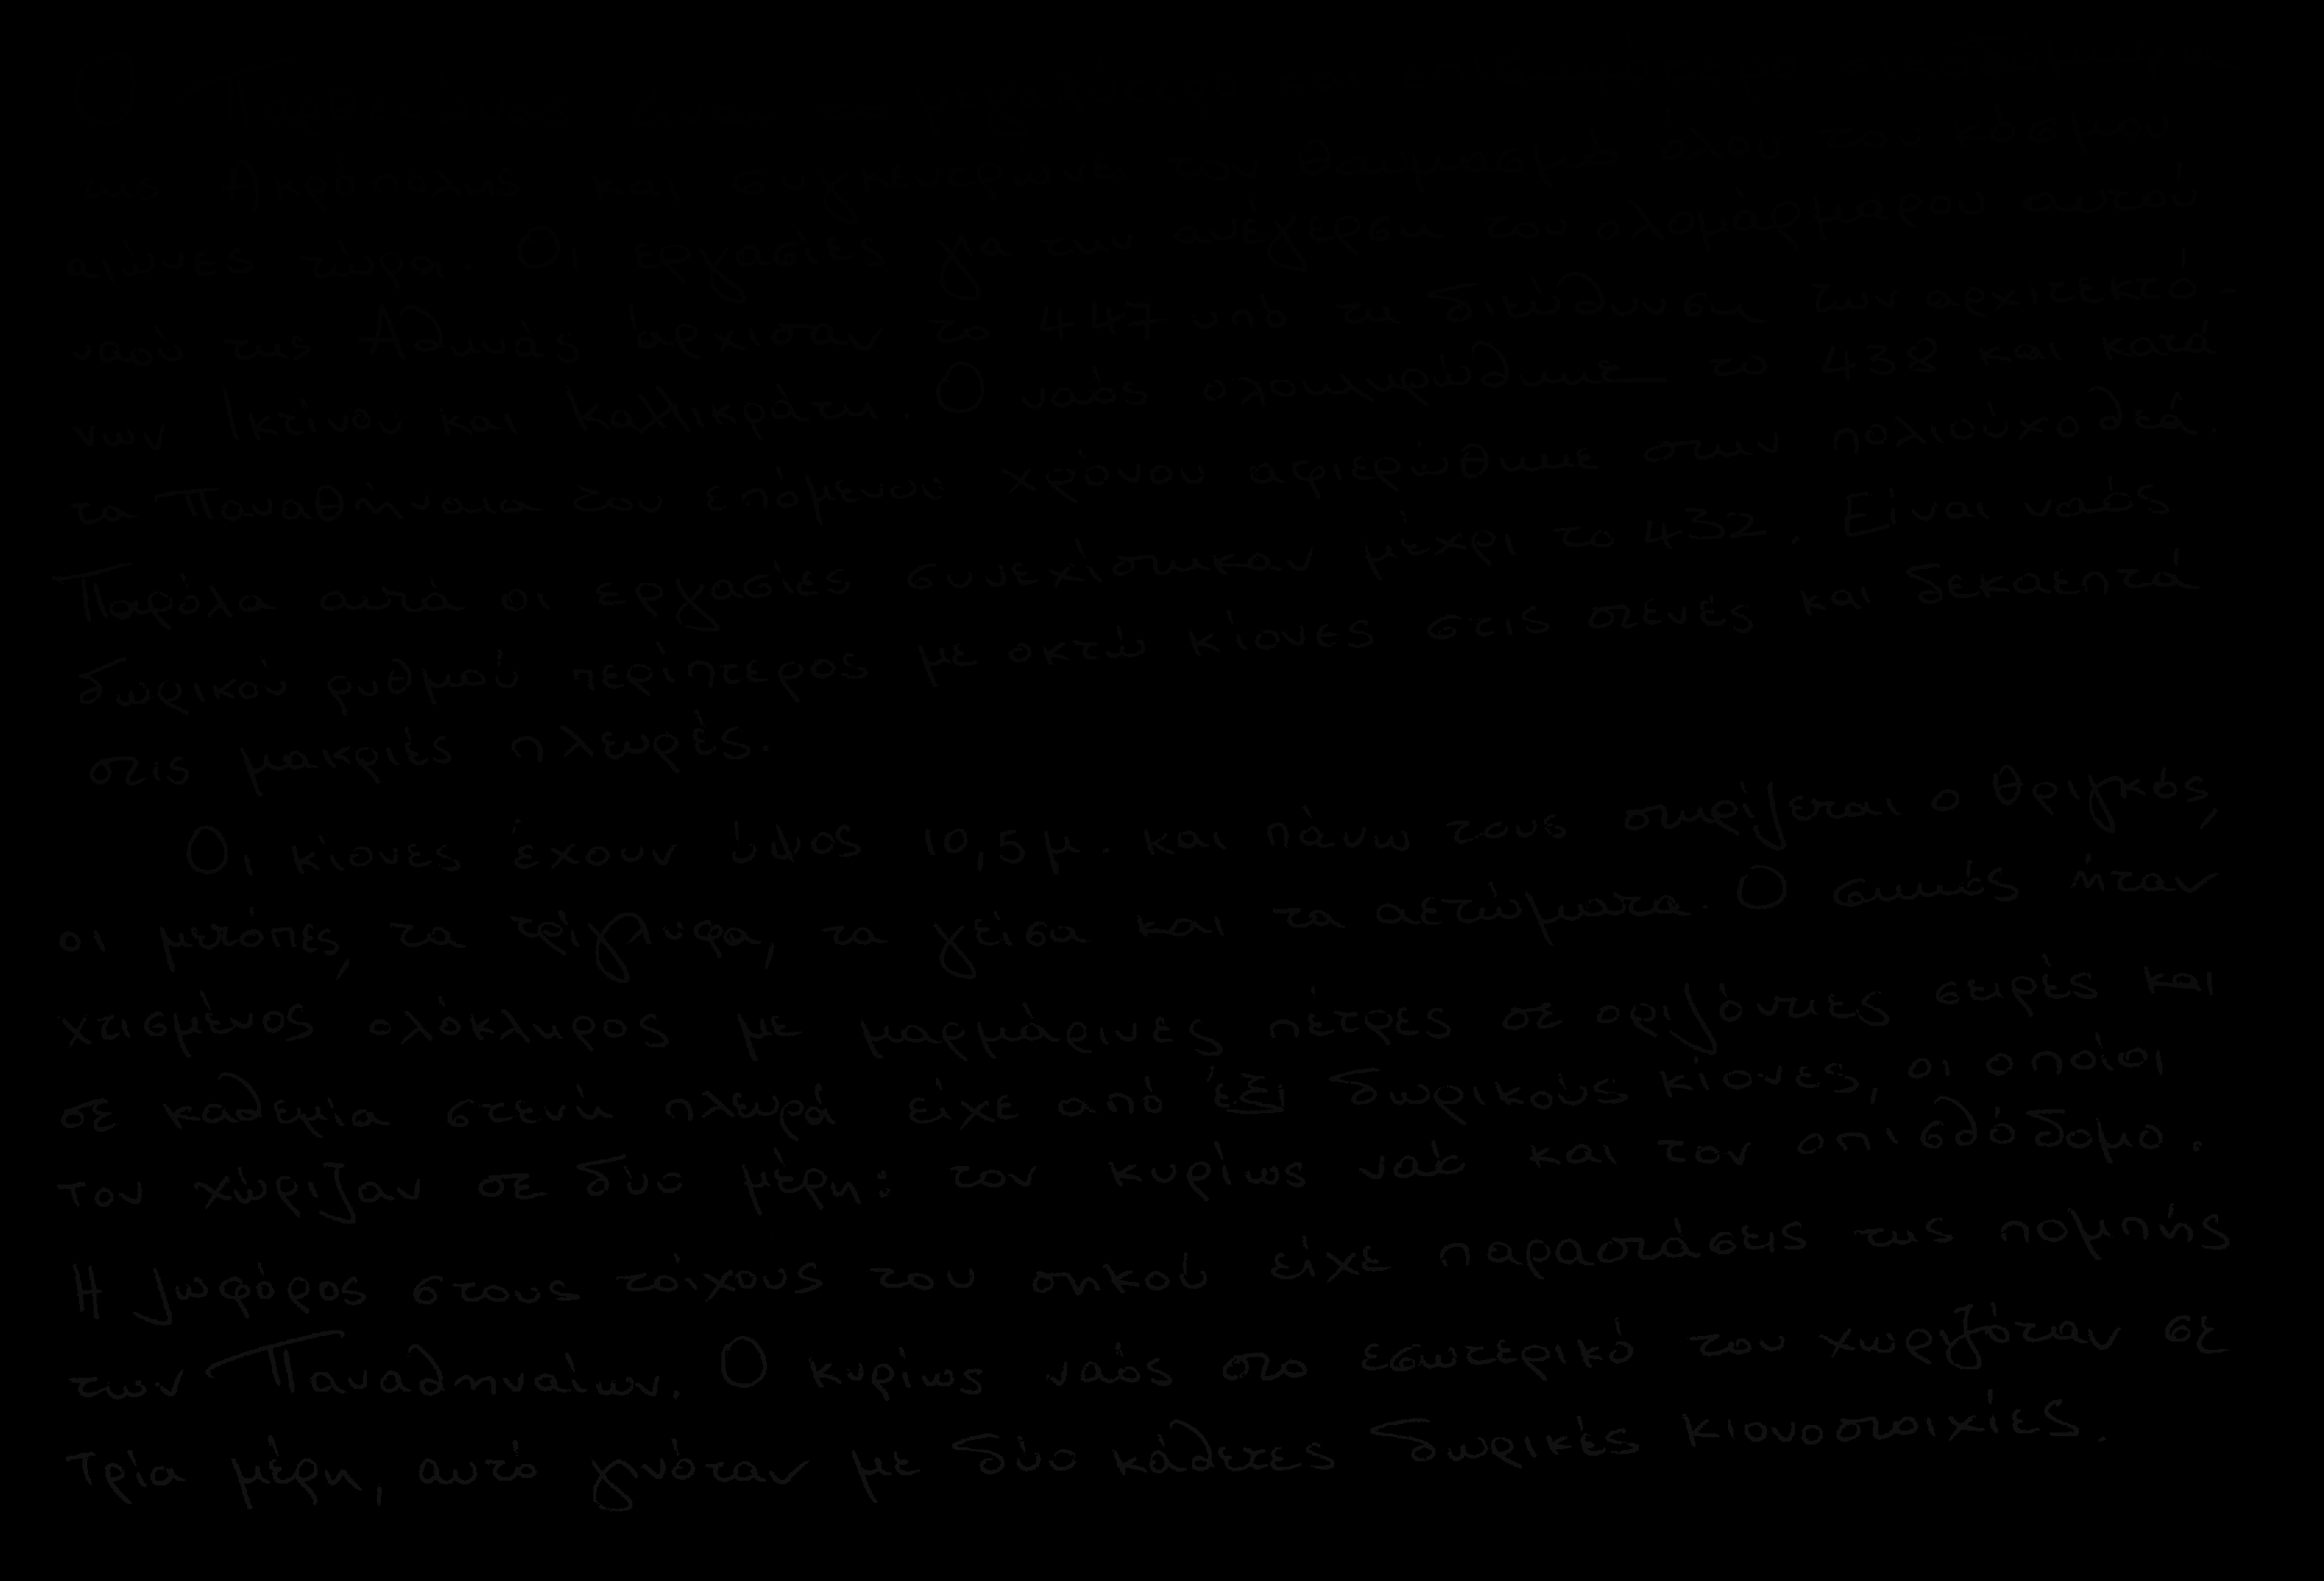 Ο
της Ακρόπολης και συγκεντρώνει τον θαυμασμό όλου του κόσμου
αιώνες τώρα. Οι εργασίες για την ανέγερση του ολομάρμαρου αυτού
ναού της Αθηνάς άρχισαν το 447 υπό τη διεύθυνση των αρχιτεκτό-
νων Ικτίνου και Καλλικράτη. Ο ναός ολοκληρώθηκε το 438 και κατά
τα Παναθήναια του επόμενου χρόνου αφιερώθηκε στην πολιούχο θεά.
Παρόλα αυτά οι εργασίες συνεχίστηκαν μέχρι το 432. Είναι ναός
δωρικού ρυθμού περίπτερος με οκτώ κίονες στις στενές και δεκαεπτά
στις μακριές πλευρές.
Οι κίονες έχουν ύψος 10,5μ. και πάνω τους στηρίζεται ο θριγκός,
οι μετόπες, τα τρίγλυφα, τα γείσα και τα αετώματα. Ο σηκός ήταν
χτισμένος ολόκληρος με μαρμάρινες πέτρες σε οριζόντιες σειρές και
σε καθεμία στενή πλευρά είχε από έξι δωρικούς κίονες, οι οποίοι
τον χώριζαν σε δύο μέρη: τον κυρίως ναό και τον οπισθόδομο.
Η ζωφόρος στους τοίχους του σηκού είχε παραστάσεις της πομπής
των Παναθηναίων. Ο κυρίως ναός στο εσωτερικό του χωριζόταν σε
τρία μέρη, αυτό γινόταν με δύο κάθετες δωρικές κιονοστοιχίες.